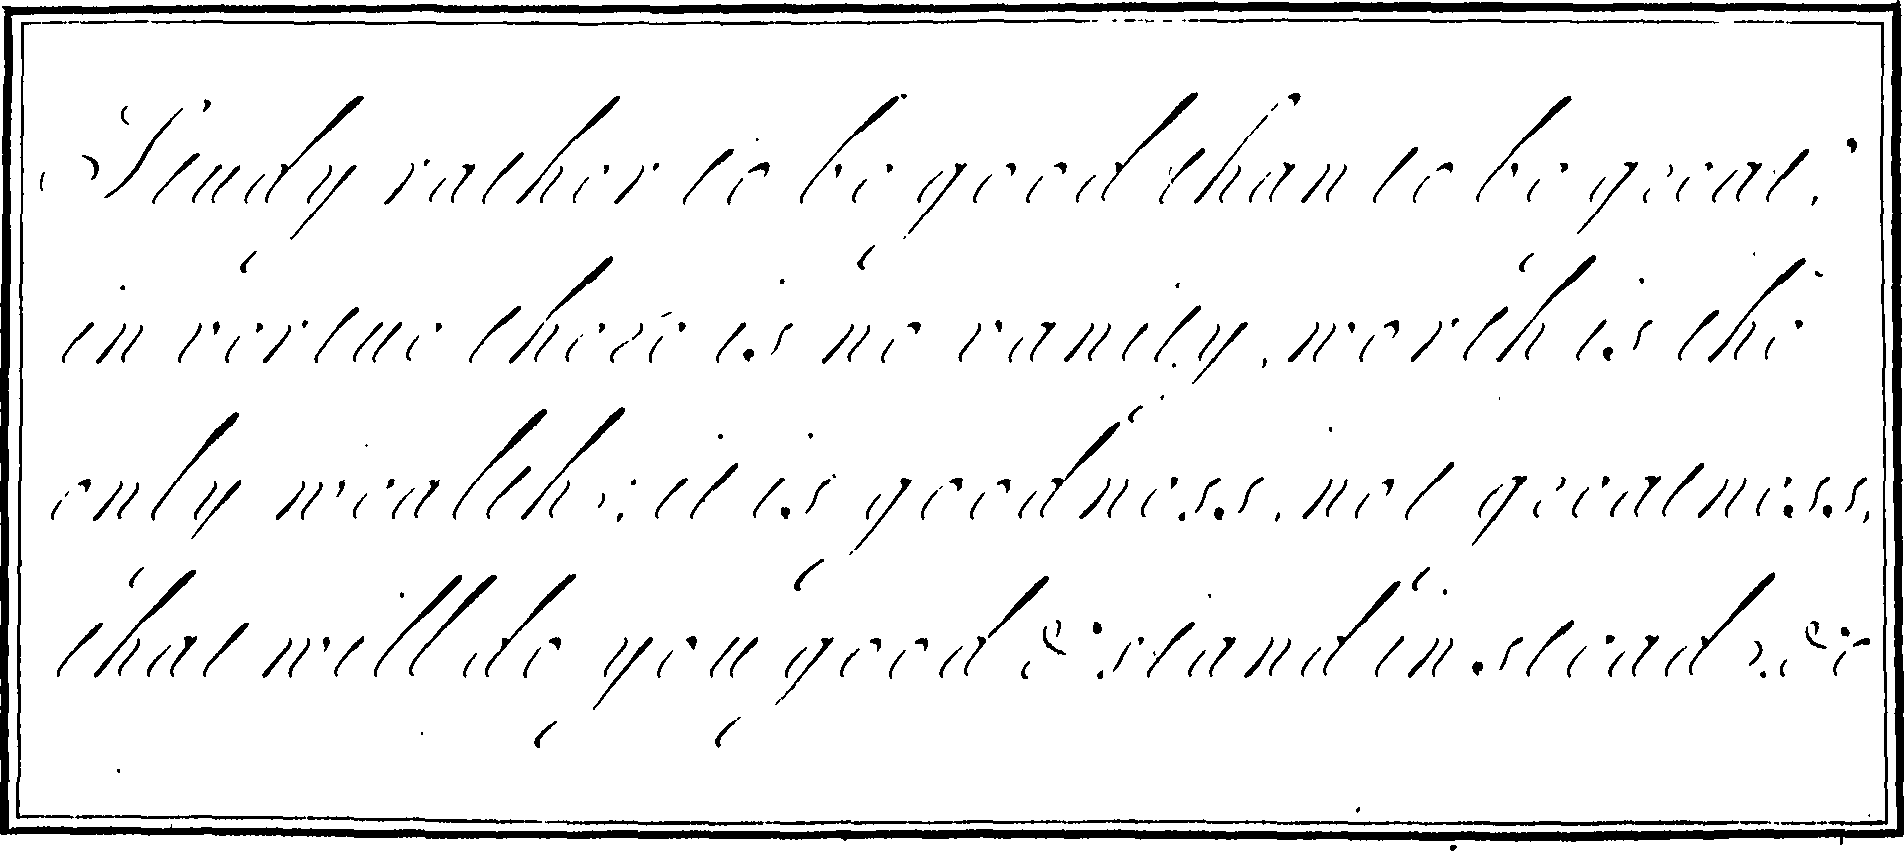 Study rather to be good than to be great;
in vertue there is no vanity, worth is the
only wealth; it is goodness, not greatness,
that will do you good & stand in stead. &c